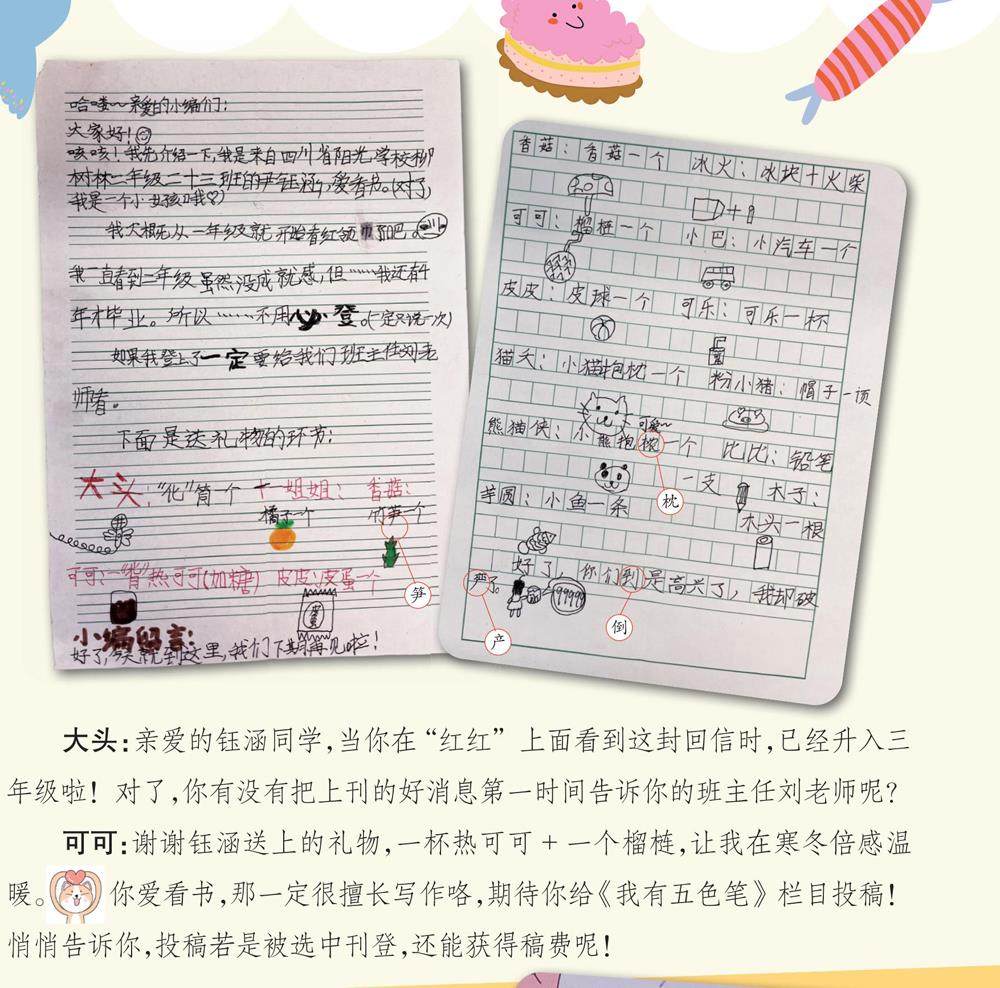 哈喽~亲爱的小编们:
大家好!
咳咳!我先介绍一下,我是来自四川省阳光学校柳
树林二年级二十三班的严钰涵,爱看书。(对了,
我是一个小女孩哦♡)
我大概从一年级就开始看红领巾了吧。
我一直看到二年级虽然没成就感,但……我还有4
年才毕业。所以……不用必登。(一定只说一次)
如果我登上了一定要给我们班主任刘老
师看。
下面是送礼物的环节:
大头:“化”筒一个 十一姐姐: 香菇:
橘子一个 竹笋一个
可可:一“背”热可可(加糖) 皮皮:皮蛋一个
笋
小编留言:
好了,今天就到这里,我们下期再见啦!
香菇:香菇一个 冰火:冰块+火柴
+
可可:榴梿一个 小巴:小汽车一个
皮皮:皮球一个 可乐:可乐一杯
猫天:小猫抱枕一个 粉小猪:帽子一顶
可爱~
熊猫侠:小熊抱枕一个 比比:铅笔
一支 木子:
枕
芋圆:小鱼一条
木头一根
好了,你们到是高兴了,我却破
严了。 99999
产
倒
大头:亲爱的钰涵同学,当你在“红红”上面看到这封回信时,已经升入三
年级啦!对了,你有没有把上刊的好消息第一时间告诉你的班主任刘老师呢?
可可:谢谢钰涵送上的礼物,一杯热可可+一个榴梿,让我在寒冬倍感温
暖。你爱看书,那一定很擅长写作咯,期待你给《我有五色笔》栏目投稿!
悄悄告诉你,投稿若是被选中刊登,还能获得稿费呢!